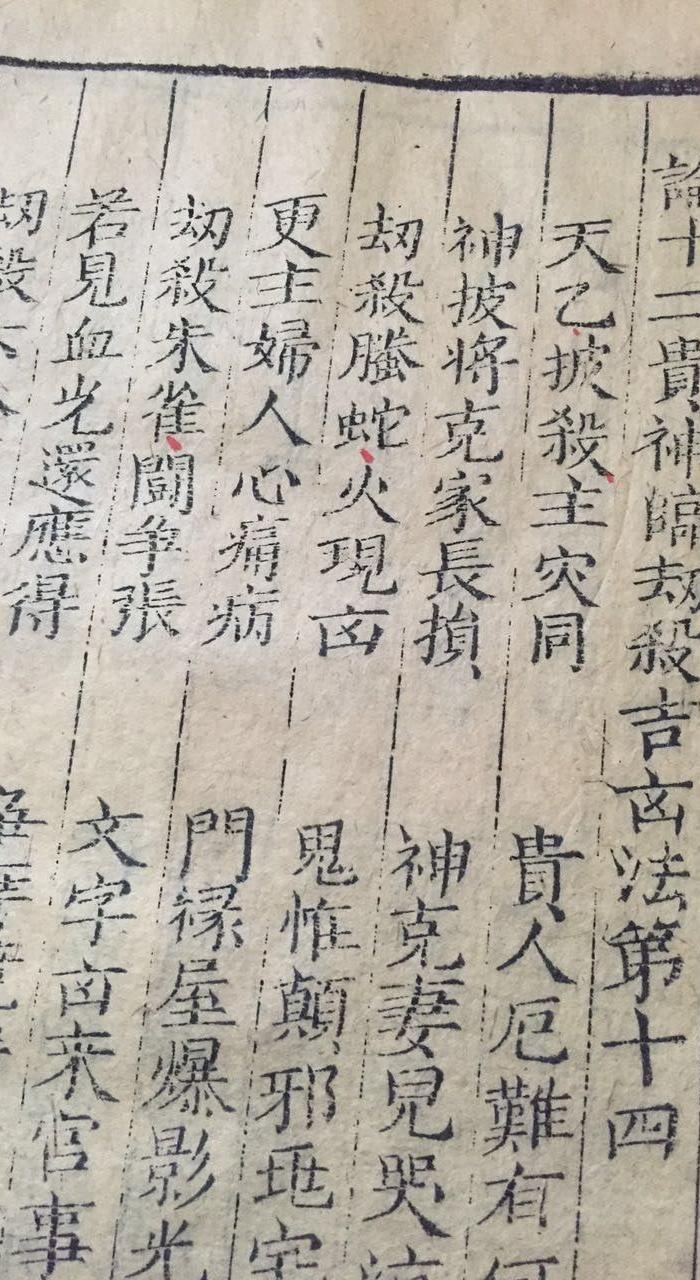 論十二貴神臨刼殺吉㐫法第十四
天乙披殺主灾同 貴人厄難有何
神披将克家長損 神克妻兒哭
刼殺螣蛇火現㐫 鬼惟顛邪
更主婦人心痛病 門禄屋爆影光
刼殺朱雀闘争張 文字㐫来官事
若見血光還應得
刼殺